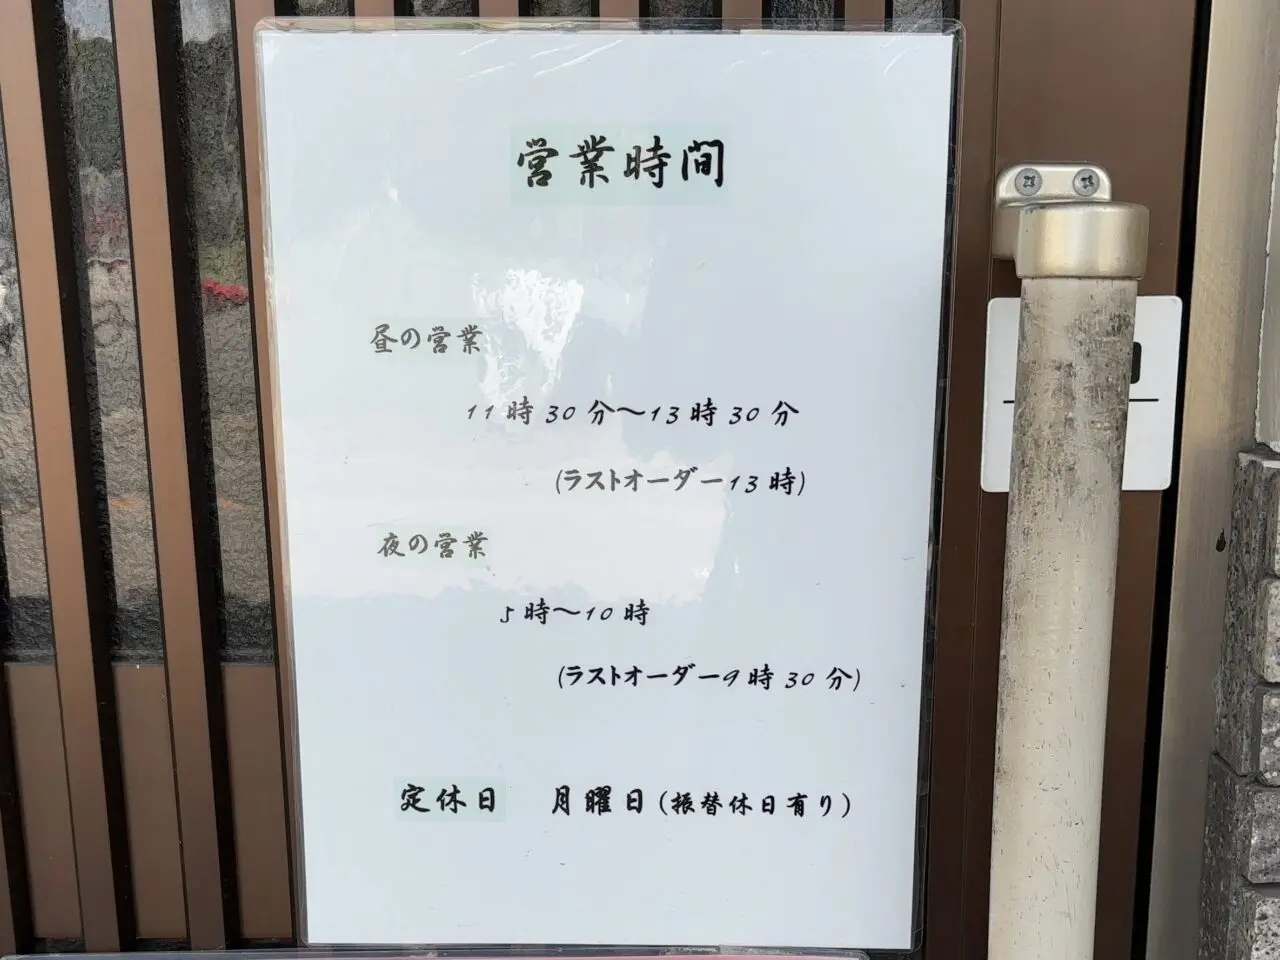 営業時間
昼の営業
11時30分～13時30分
(ラストオーダー13時)
夜の営業
5時～10時
(ラストオーダー9時30分)
定休日　月曜日(振替休日有り)